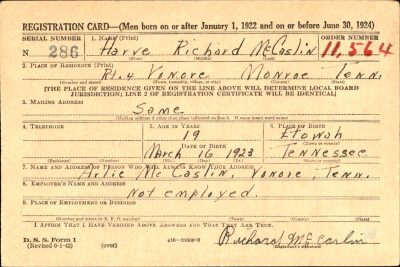 REGISTRATION CARD—(Men born on or after January 1, 1922 and on or before June 30, 1924)
SERIAL NUMBER 1. NAME (Print) ORDER NUMBER
N 286 Harve Richard McCaslin 11,564
2. PLACE OF RESIDENCE (Print)
Rt. 4 Vonore Monroe Tenn.
(Number and street) (Town, township, village, or city) (County) (State)
[THE PLACE OF RESIDENCE GIVEN ON THE LINE ABOVE WILL DETERMINE LOCAL BOARD
JURISDICTION; LINE 2 OF REGISTRATION CERTIFICATE WILL BE IDENTICAL]
3. MAILING ADDRESS
Same
[Mailing address if other than place indicated on line 2. If same insert word same]
4. TELEPHONE 5. AGE IN YEARS 6. PLACE OF BIRTH
19 Etowah
DATE OF BIRTH (Town or county)
March 16 1923 Tennessee
(Exchange) (Number) (Mo.) (Day) (Yr.) (State or country)
7. NAME AND ADDRESS OF PERSON WHO WILL ALWAYS KNOW YOUR ADDRESS
McCaslin, Vonore, Tenn.
8. EMPLOYER'S NAME AND ADDRESS
Not employed.
9. PLACE OF EMPLOYMENT OR BUSINESS
(Number and street or R. F. D. number) (Town) (County) (State)
I AFFIRM THAT I HAVE VERIFIED ABOVE ANSWERS AND THAT THEY ARE TRUE.
D. S. S. Form 1
(Revised 6-9-42) (over) Richard McCaslin
(Registrant's signature)